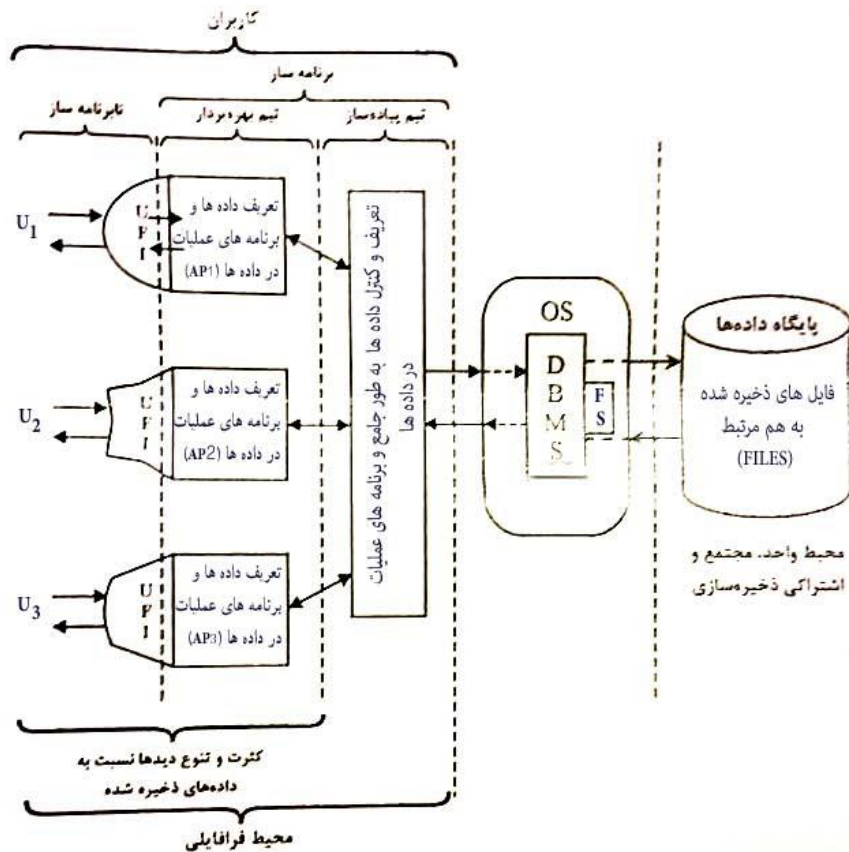 کاربران
برنامه ساز
نابرنامه ساز
تیم بهره‌بردار
تیم پیاده‌ساز
U1
U
F
I
تعریف داده ها و
برنامه های عملیات
در داده ها (AP1)
U2
U
F
I
تعریف داده ها و
برنامه های عملیات
در داده ها (AP2)
U3
U
F
I
تعریف داده ها و
برنامه های عملیات
در داده ها (AP3)
تعریف و کنترل داده ها به طور جامع و برنامه های عملیات
در داده ها
OS
D
B
M
S
F
S
پایگاه داده‌ها
فایل های ذخیره شده
به هم مرتبط
(FILES)
محیط واحد، مجتمع و
اشتراکی ذخیره‌سازی
کثرت و تنوع دیدها نسبت به
داده‌های ذخیره شده
محیط فرافایلی